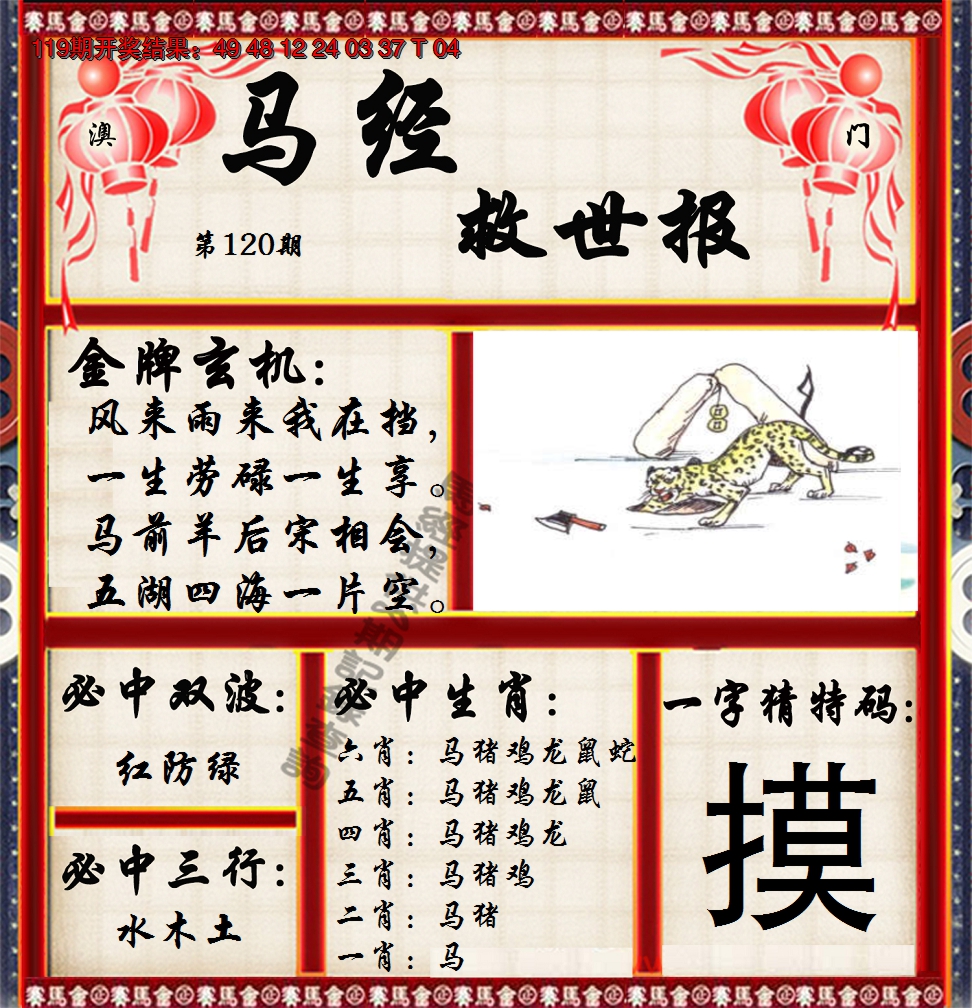 119期开奖结果：49 48 12 24 03 37 T 04
澳
门
马经
救世报
第120期
金牌玄机：
风来雨来我在挡，
一生劳碌一生享。
马前羊后宋相会，
五湖四海一片空。
必中双波：
红防绿
必中三行：
水木土
必中生肖：
六肖：马猪鸡龙鼠蛇
五肖：马猪鸡龙鼠
四肖：马猪鸡龙
三肖：马猪鸡
二肖：马猪
一肖：马
一字猜特码：
摸